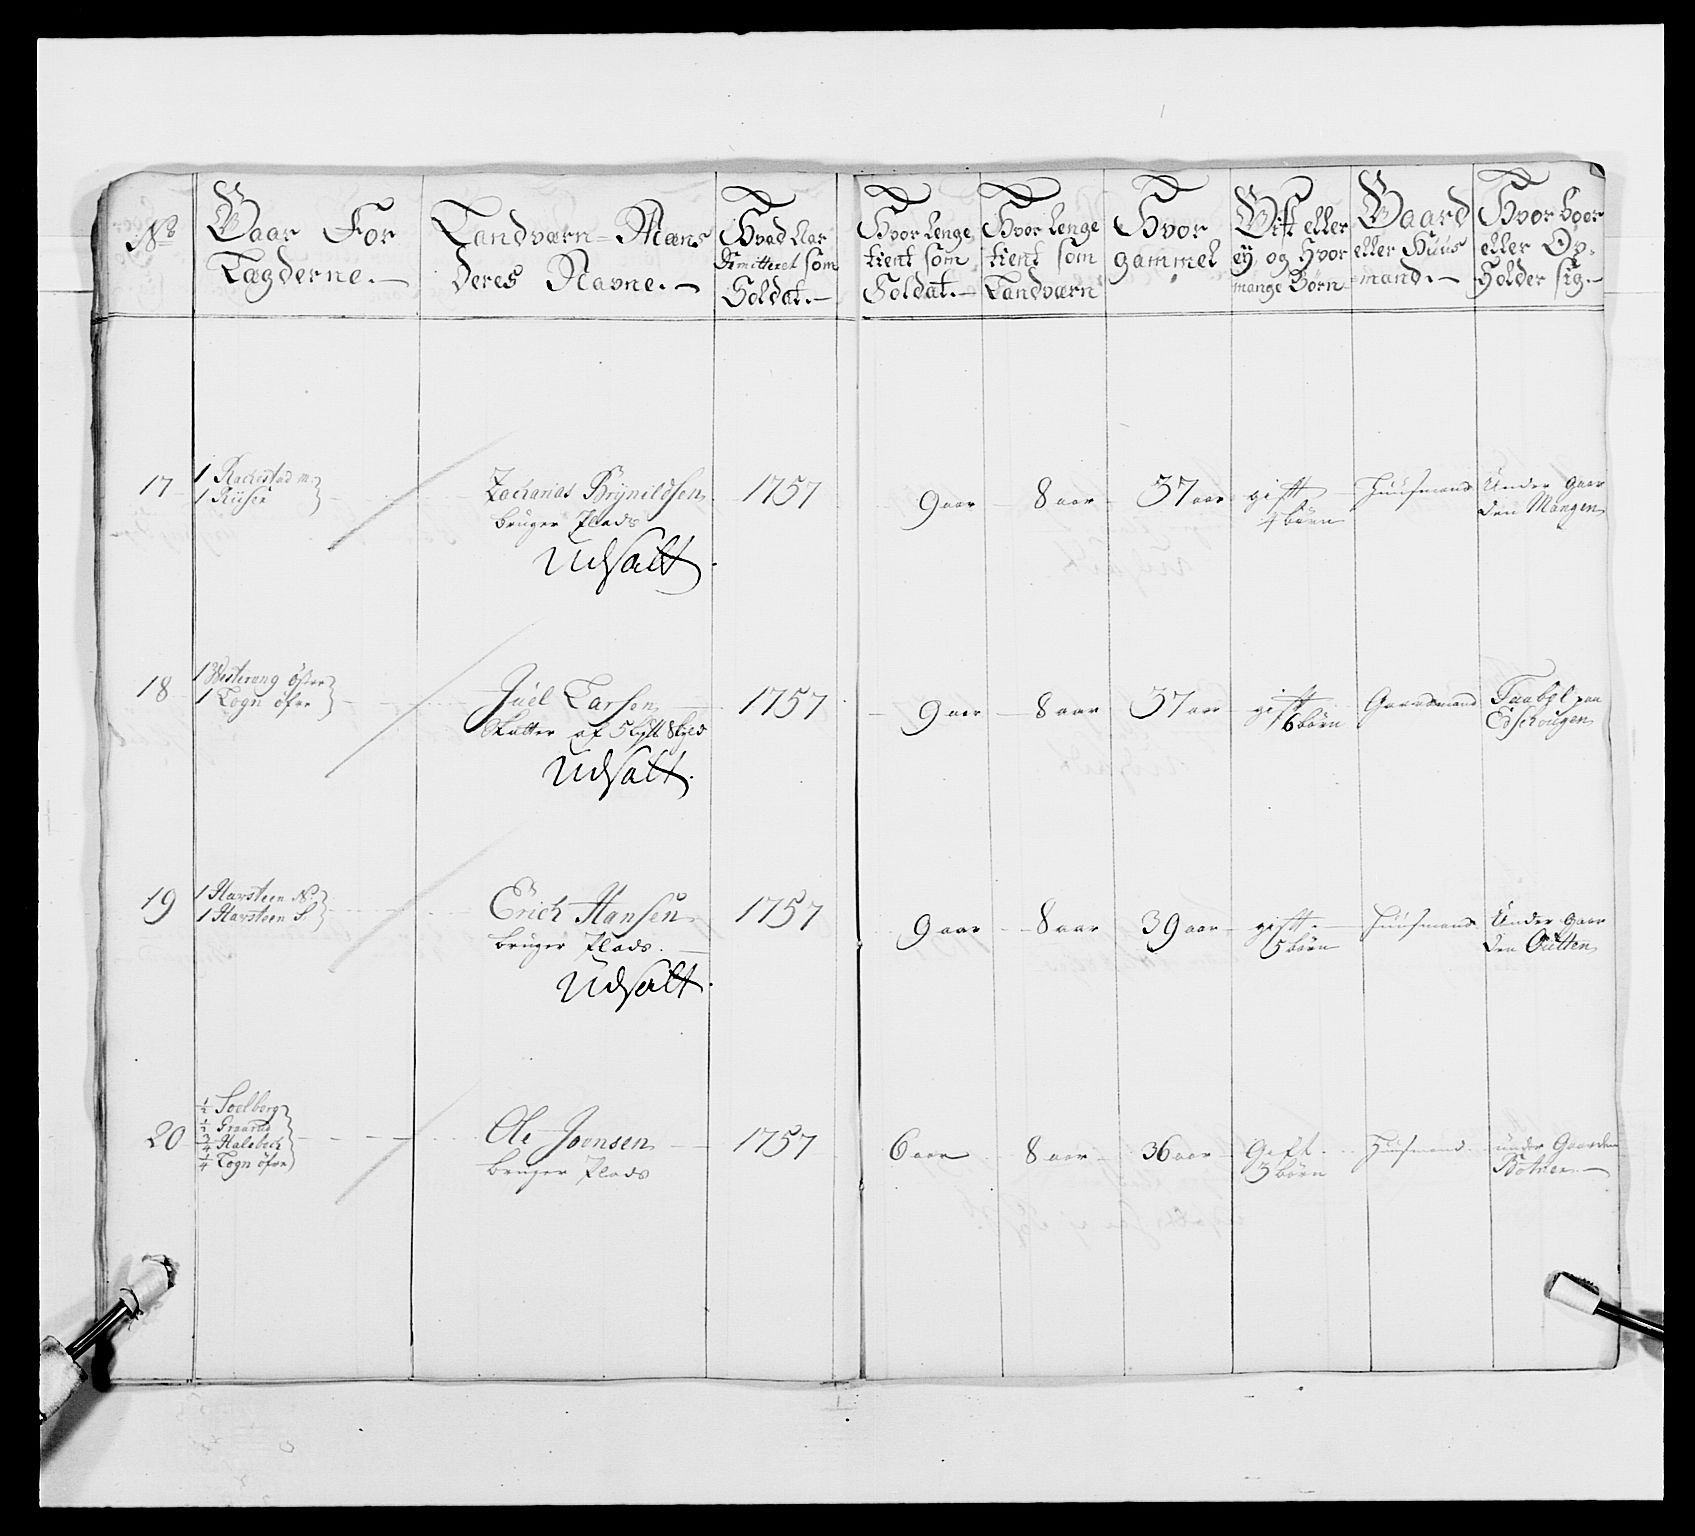 No
Gaar For
Lægderne.
Landværn-Mæns
Deres Navne.
Hvad Aar
Dimitteret som
Soldat.
Hvor Lenge
tient som
Soldat.
Hvor Lenge
tient som
Landværn
Hvor
gammel
Gift eller
ey, og Hvor
mange Børn
Gaard
eller Huus
mand.
Hvor boer
eller Op-
Holder sig.
17
1 Rachestad m:
1 Riiser
Zacharias Brynildsen
bruger Plads
Udsatt
1757
9 aar
8 aar
37 aar
gift
4 børn
Huusmand
Under gaar
den Mangen
18
1 Westereng öfver
1 Togn öfver
Juel Larsen
Skatter af 5 Skyld
Udsatt
1757
9 aar
8 aar
37 aar
gift
6 børn
Gaardmand
paa
Edschougen
19
1 Harsteen N:
1 Harsteen S
Erich Hansen
bruger Plads.
Udsatt
1757
9 aar
8 aar
39 aar
gift
5 børn
Huusmand
Under gaar
den
20
1/2 Soelberg
1/2 Graarud
3/4 Halebech
1/4 Togn öfver
Ole Joensen
bruger Plads
1757
6 aar
8 aar
36 aar
Gift.
3 börn
Huusmand.
under Gaarden
Botner